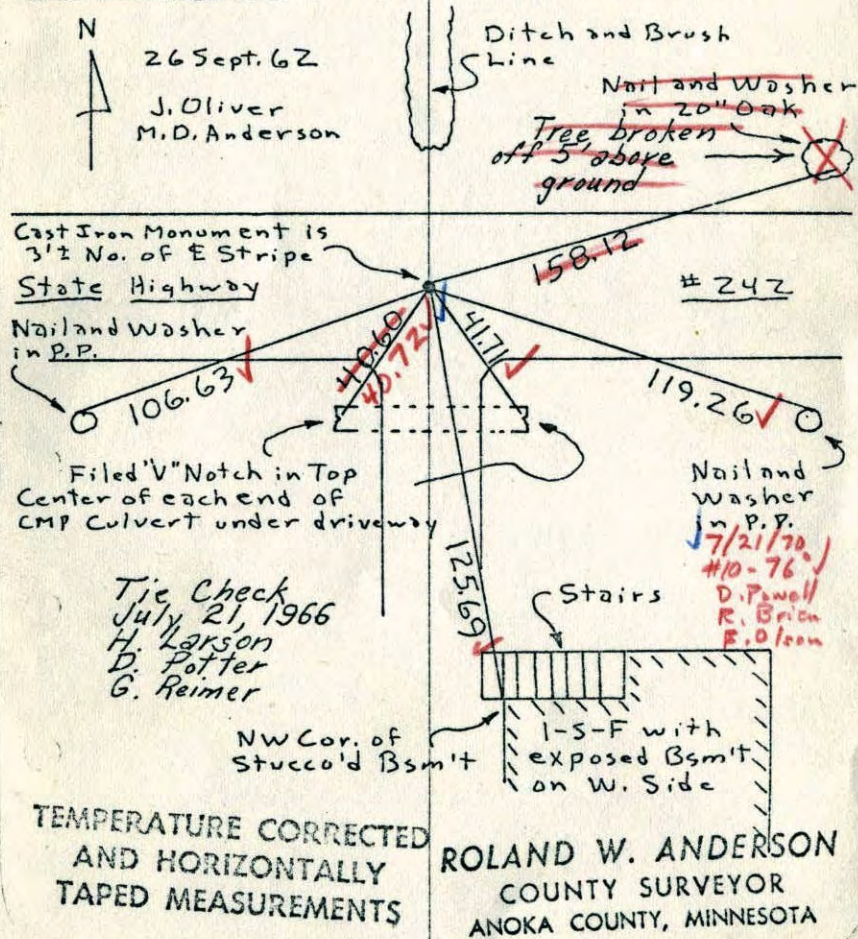 N
26 Sept. 62
J. Oliver
M.D. Anderson
Ditch and Brush
Line
Nail and Washer
in 20" Oak
Tree broken
off 5' above
ground
Cast Iron Monument is
3'± No. of ₵ Stripe
State Highway
# 242
158.12
Nail and Washer
in P.P.
106.63
40.60
40.72
41.71
119.26
Filed "V" Notch in Top
Center of each end of
CMP Culvert under driveway
Nail and
Washer
in P.P.
7/21/70
#10-76
D. Powell
R. Brion
E. Olson
125.69
Tie Check
July 21, 1966
H. Larson
D. Potter
G. Reimer
Stairs
NW Cor. of
Stucco'd Bsm't
1-S-F with
exposed Bsm't
on W. Side
TEMPERATURE CORRECTED
AND HORIZONTALLY
TAPED MEASUREMENTS
ROLAND W. ANDERSON
COUNTY SURVEYOR
ANOKA COUNTY, MINNESOTA